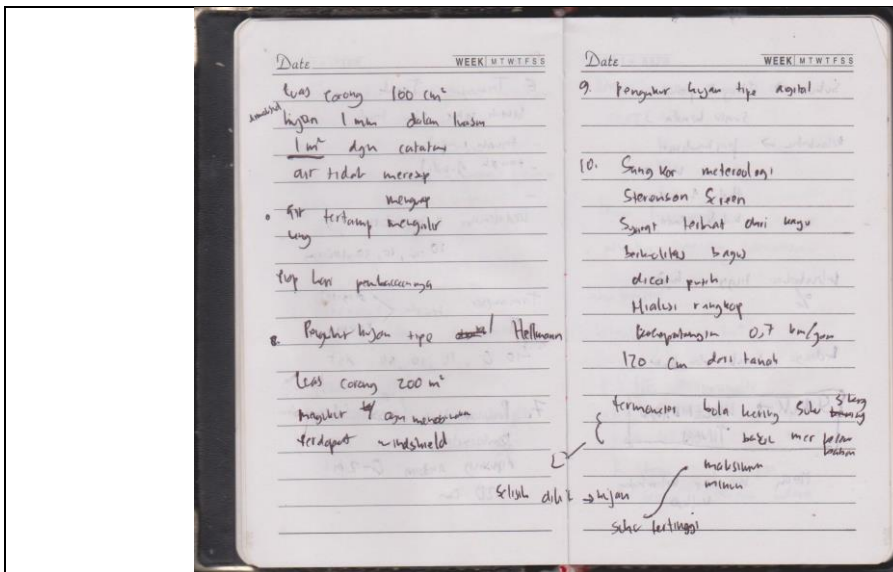 Date WEEK M T W T F S S
luas corong 100 cm²
hujan 1 mm dalam luasan
1 m² dgn catatan
air tidak meresap
menguap
air tertamp mengalir
tiap hari pembacaannya
8. Pengukur hujan tipe Hellmann
luas corong 200 m²
terdapat windshield
Date WEEK M T W T F S S
9. Pengukur hujan tipe
10. Sangkar meteorologi
Stevenson Screen
Syarat terbuat dari kayu
Berkualitas bagus
dicat putih
rangkap
0,7 km/jam
120 cm dari tanah
termometer bola kering suhu
maksimum
selisih dikit → hujan
suhu tertinggi